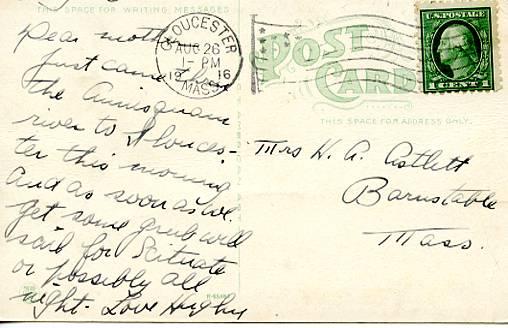 THIS SPACE FOR WRITING MESSAGES
Dear mother
Just came thru
the Annisquam
river to Glouces-
ter this morning
and as soon as we
get some grub will
sail for Scituate
or possibly all
night. Love Hughy
GLOUCESTER
AUG 26
1-PM
1916
MASS.
POST
CARD
THIS SPACE FOR ADDRESS ONLY.
U.S. POSTAGE
1 CENT 1
Mrs H. A. Astlett
Barnstable
Mass.